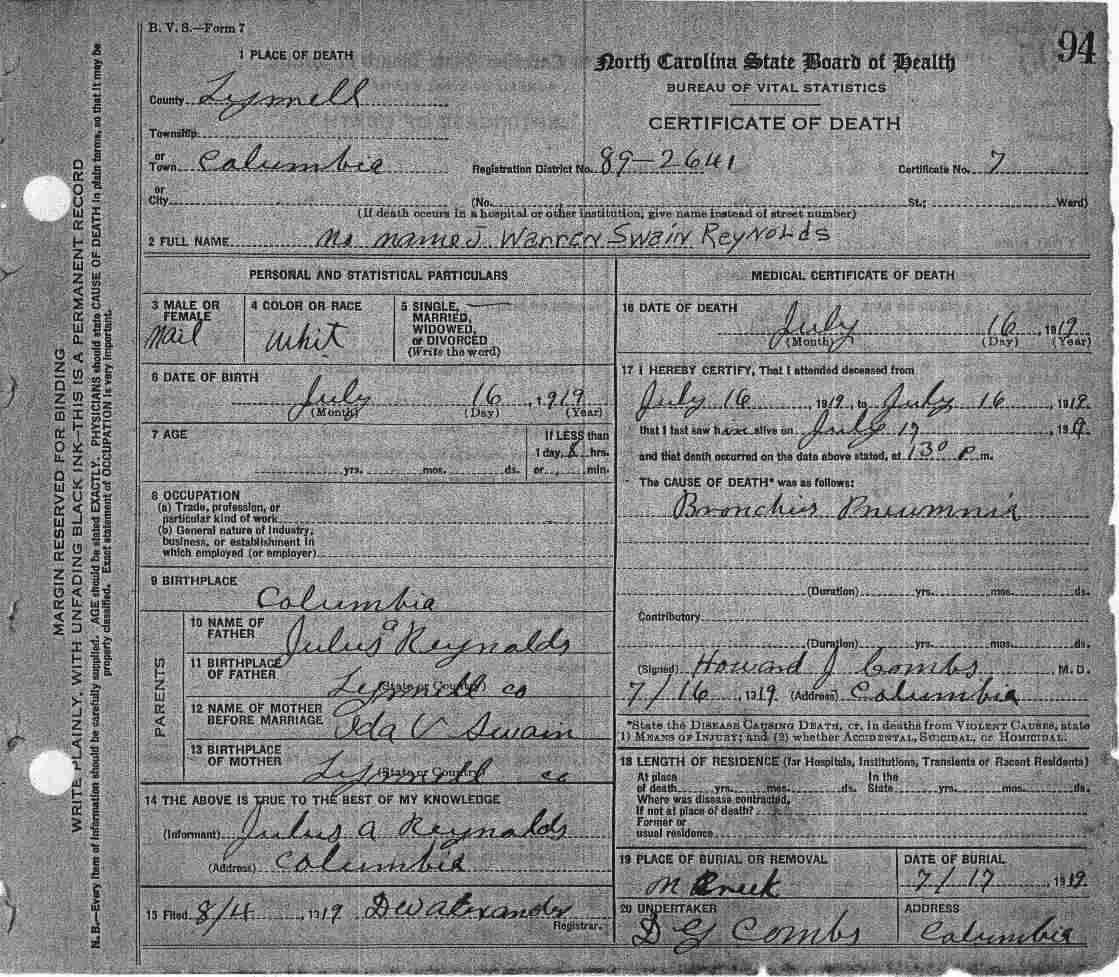 B. V. S.—Form 7
94
1 PLACE OF DEATH
North Carolina State Board of Health
BUREAU OF VITAL STATISTICS
CERTIFICATE OF DEATH
County Tyrrell
Township
or Town Columbia
Registration District No. 89-2641
Certificate No. 7
or City
(No. St.; Ward)
(If death occurs in a hospital or other institution, give name instead of street number)
2 FULL NAME no name J Warren Swain Reynolds
PERSONAL AND STATISTICAL PARTICULARS
3 MALE OR FEMALE
mail
4 COLOR OR RACE
Whit
5 SINGLE, MARRIED, WIDOWED, or DIVORCED
(Write the word)
6 DATE OF BIRTH
July 16, 1919
(Month) (Day) (Year)
7 AGE
yrs. mos. ds.
If LESS than
1 day, 8 hrs.
or min.
8 OCCUPATION
(a) Trade, profession, or
particular kind of work
(b) General nature of industry,
business, or establishment in
which employed (or employer)
9 BIRTHPLACE
Columbia
PARENTS
10 NAME OF FATHER
Julius a Reynolds
11 BIRTHPLACE OF FATHER
(State or Country)
Tyrrell co
12 NAME OF MOTHER BEFORE MARRIAGE
Ida V Swain
13 BIRTHPLACE OF MOTHER
(State or Country)
Tyrrell co
14 THE ABOVE IS TRUE TO THE BEST OF MY KNOWLEDGE
(Informant) Julius A Reynolds
(Address) Columbia
15 Filed 8/4, 1919
Registrar.
MEDICAL CERTIFICATE OF DEATH
16 DATE OF DEATH
July 16, 1919
(Month) (Day) (Year)
17 I HEREBY CERTIFY, That I attended deceased from
July 16, 1919, to July 16, 1919.
that I last saw him alive on July 17, 1919,
and that death occurred on the date above stated, at 130 P m.
The CAUSE OF DEATH* was as follows:
Bronchius Pneumnia
(Duration) yrs. mos. ds.
Contributory
(Duration) yrs. mos. ds.
(Signed) Howard J Combs M. D.
7/16, 1919 (Address) Columbia
*State the DISEASE CAUSING DEATH, or, in deaths from VIOLENT CAUSES, state
(1) MEANS OF INJURY; and (2) whether ACCIDENTAL, SUICIDAL, or HOMICIDAL.
18 LENGTH OF RESIDENCE (for Hospitals, Institutions, Transients or Recent Residents)
At place of death yrs. mos. ds. In the State yrs. mos. ds.
Where was disease contracted,
If not at place of death?
Former or
usual residence
19 PLACE OF BURIAL OR REMOVAL
Creek
DATE OF BURIAL
7/17, 1919
20 UNDERTAKER
D G Combs
ADDRESS
Columbia
MARGIN RESERVED FOR BINDING
WRITE PLAINLY, WITH UNFADING BLACK INK—THIS IS A PERMANENT RECORD
N. B.—Every item of information should be carefully supplied. AGE should be stated EXACTLY. PHYSICIANS should state CAUSE OF DEATH in plain terms, so that it may be
properly classified. Exact statement of OCCUPATION is very important.